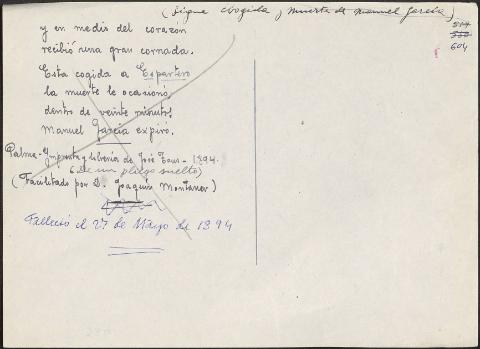 (Sigue cogida y muerte de Manuel García)
604
y en medio del corazón
recibió una gran cornada.
Esta cogida a Espartero
la muerte le ocasionó
dentro de veinte minutos
Manuel García expiró.
Palma - Imprenta y librería de José Tous - 1894.
(de un pliego suelto)
(Facilitado por D. Joaquín Montaner)
Falleció el 27 de Mayo de 1894